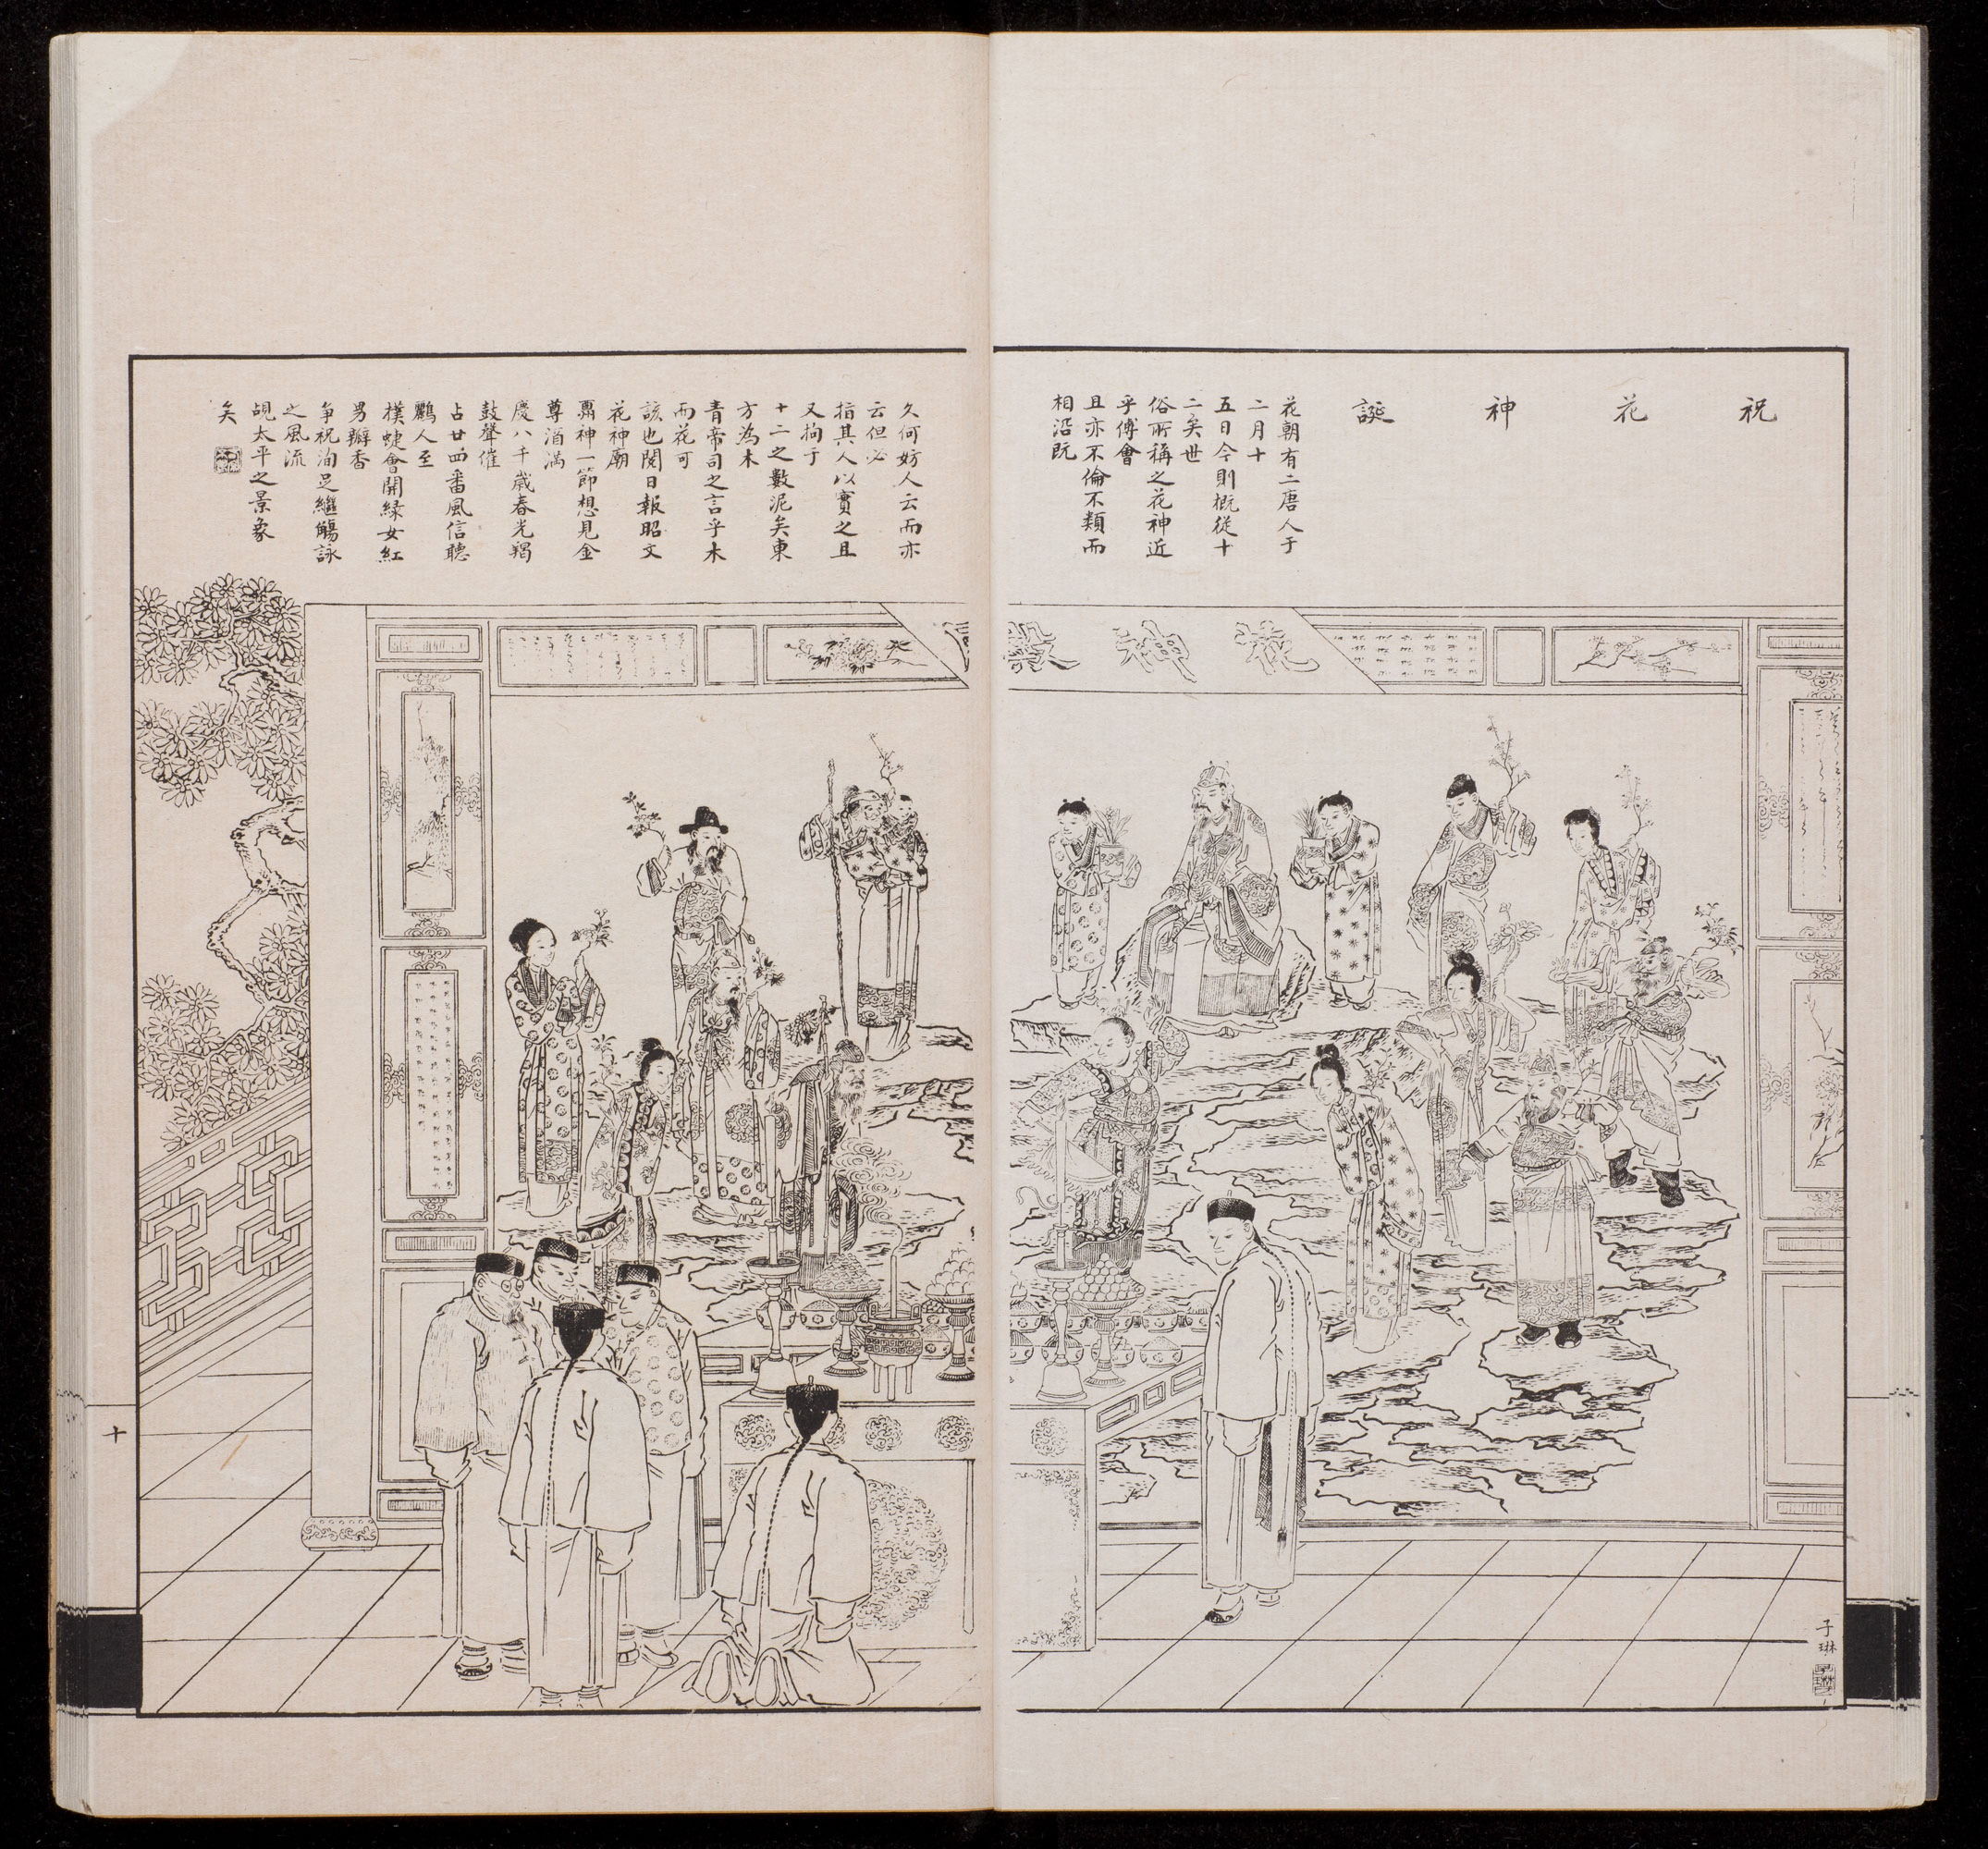 祝花神誕
花朝有二唐人于
二月十
五日今則概從十
二矣世
俗所稱之花神近
乎傅會
且亦不倫不類而
相沿既
久何妨人云而亦
云但必
指其人以實之且
又拘于
十二之數泥矣東
方為木
青帝司之言乎木
而花可
該也閱日報昭文
花神廟
賽神一節想見金
尊酒滿
慶八千歲春光羯
鼓聲催
占廿四番風信聽
鸝人至
撲蜨會開綠女紅
男瓣香
爭祝洵足繼觴詠
之風流
覘太平之景象
矣
花神殿
子琳
十